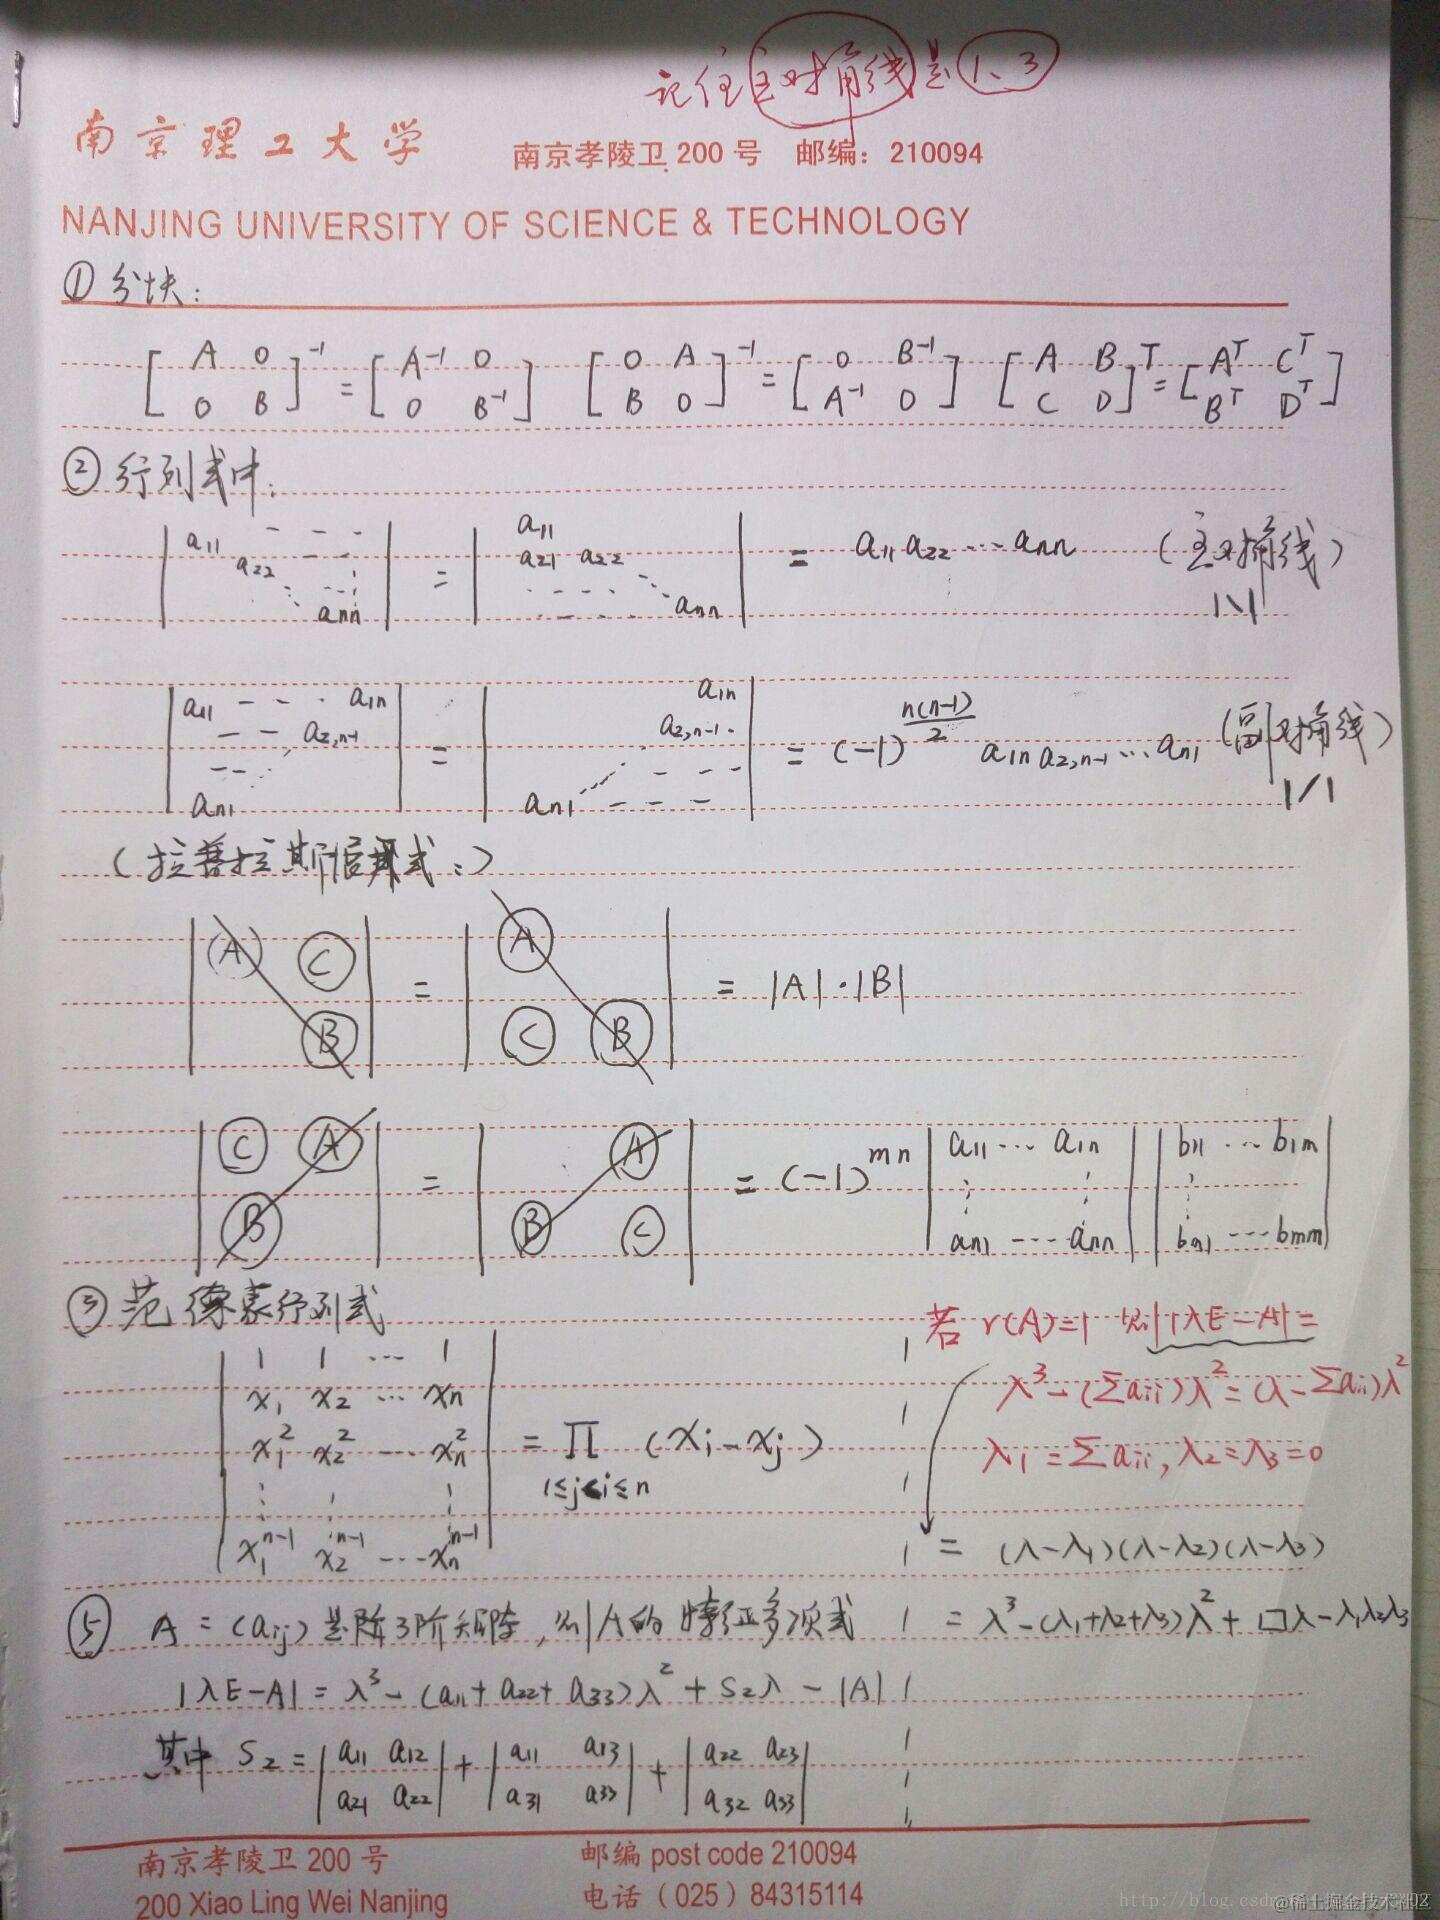 记住主对角线是1、3
南京理工大学 南京孝陵卫 200 号 邮编：210094
NANJING UNIVERSITY OF SCIENCE & TECHNOLOGY
① 分块：
[A 0; 0 B]⁻¹ = [A⁻¹ 0; 0 B⁻¹] [0 A; B 0]⁻¹ = [0 B⁻¹; A⁻¹ 0] [A B; C D]ᵀ = [Aᵀ Cᵀ; Bᵀ Dᵀ]
② 行列式中：
|a₁₁ - - -; a₂₂ - -; ⋱ ann| = |a₁₁; a₂₁ a₂₂; - - - ann| = a₁₁a₂₂⋯ann (主对角线) |\|
|a₁₁ - - · a₁n; - - a₂,n-1; - -; an1| = |a₁n; a₂,n-1; an1 - - -| = (-1)^(n(n-1)/2) a₁n a₂,n-1 ⋯ an1 (副对角线) |/|
(拉普拉斯展开式：)
|A C; B| = |A; C B| = |A|·|B|
|C A; B| = |A; B C| = (-1)^mn |a₁₁ ⋯ a₁n; ⋮ ⋮; an1 ⋯ ann| |b₁₁ ⋯ b₁m; ⋮; bn1 ⋯ bmm|
③ 范德蒙行列式
|1 1 ⋯ 1; x₁ x₂ ⋯ xn; x₁² x₂² ⋯ xn²; ⋮ ⋮ ⋮; x₁ⁿ⁻¹ x₂ⁿ⁻¹ ⋯ xnⁿ⁻¹| = ∏ (xi - xj)
1≤j<i≤n
若 r(A)=1 则|λE-A|=
λ³-(Σaii)λ²=(λ-Σaii)λ²
λ₁=Σaii, λ₂=λ₃=0
= (λ-λ₁)(λ-λ₂)(λ-λ₃)
= λ³-(λ₁+λ₂+λ₃)λ²+□λ-λ₁λ₂λ₃
⑤ A=(aij)是阶3阶矩阵，则A的特征多项式
|λE-A| = λ³-(a₁₁+a₂₂+a₃₃)λ²+S₂λ-|A|
其中 S₂=|a₁₁ a₁₂; a₂₁ a₂₂|+|a₁₁ a₁₃; a₃₁ a₃₃|+|a₂₂ a₂₃; a₃₂ a₃₃|
南京孝陵卫 200 号 邮编 post code 210094
200 Xiao Ling Wei Nanjing 电话（025）84315114
@稀土掘金技术社区